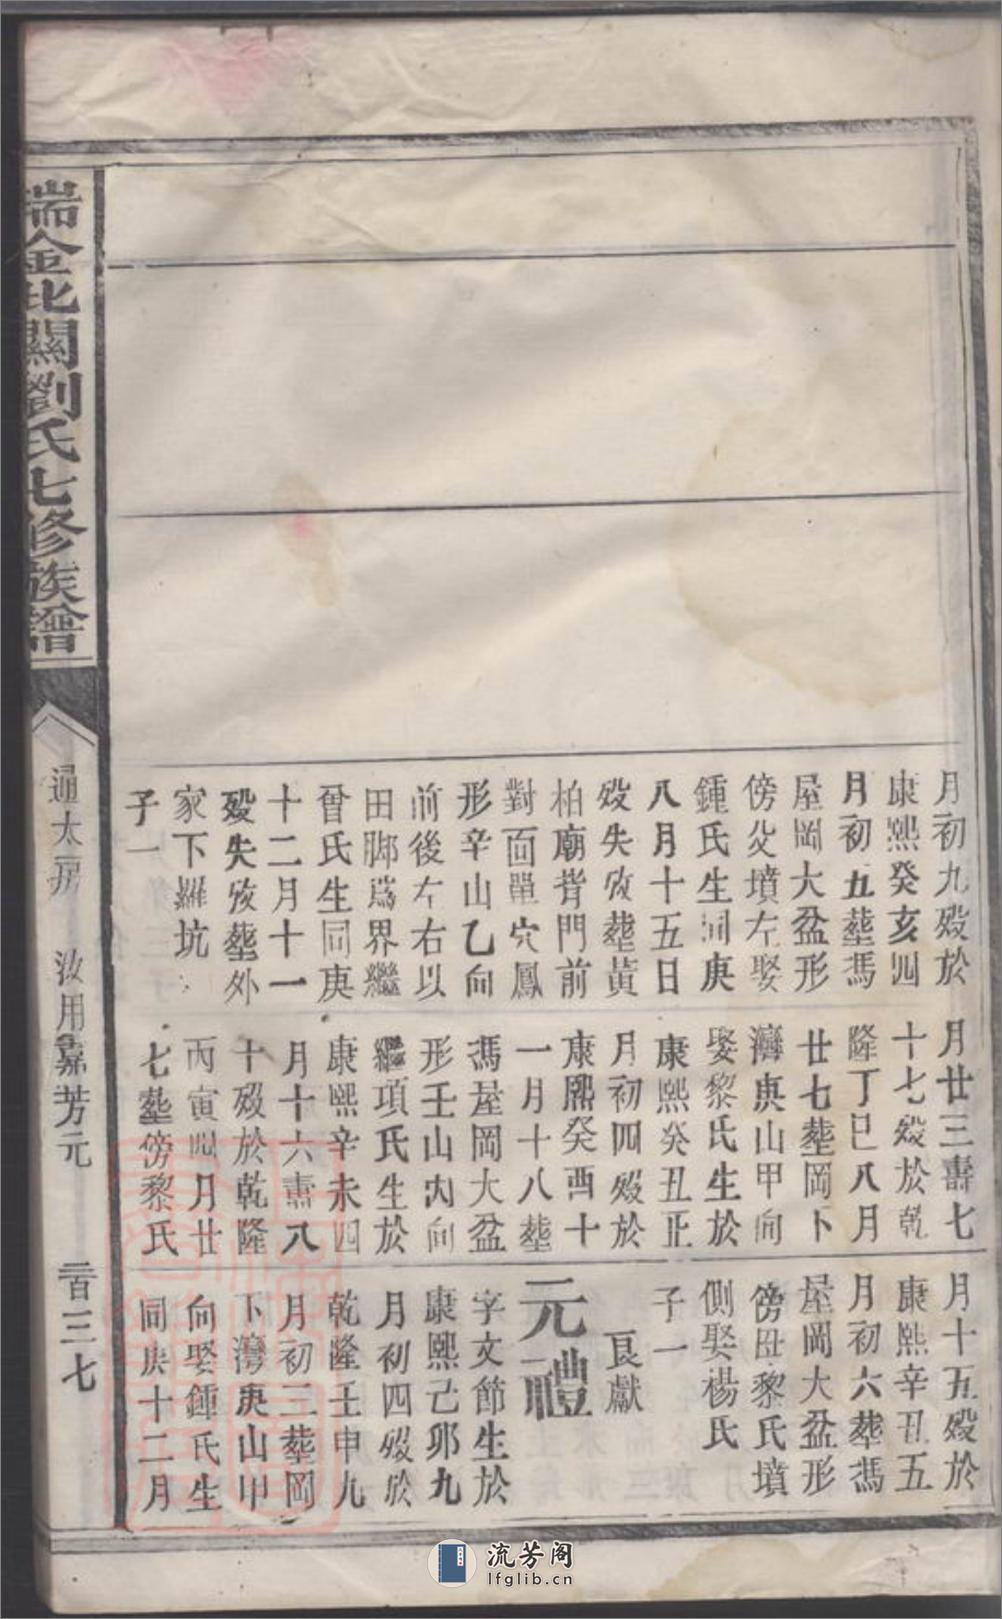 月初九歿於
康熙癸亥四
月初五塟馮
屋岡大盆形
傍父墳左娶
鍾氏生同庚
八月十五日
歿失攷塟黃
柏廟背門前
對面單穴鳳
形辛山乙向
前後左右以
田脚爲界繼
曾氏生同庚
十二月十一
歿失攷塟外
家下羅坑
子一
月廿三壽七
十七歿於乾
隆丁巳八月
廿七塟岡下
灣庚山甲向
娶黎氏生於
康熙癸丑正
月初四歿於
康熙癸酉十
一月十八塟
馮屋岡大盆
形壬山丙向
繼項氏生於
康熙辛未四
月十六壽八
十歿於乾隆
丙寅四月廿
七塟傍黎氏
月十五歿於
康熙辛丑五
月初六塟馮
屋岡大盆形
傍母黎氏墳
側娶楊氏
子一
良獻
元禮
字文節生於
康熙己卯九
月初四歿於
乾隆壬申九
月初二塟岡
下灣庚山甲
向娶鍾氏生
同庚十二月
瑞金北關劉氏七修族譜
通太房 汝用嘉芳元 二百三七
流芳阁
lfglib.cn